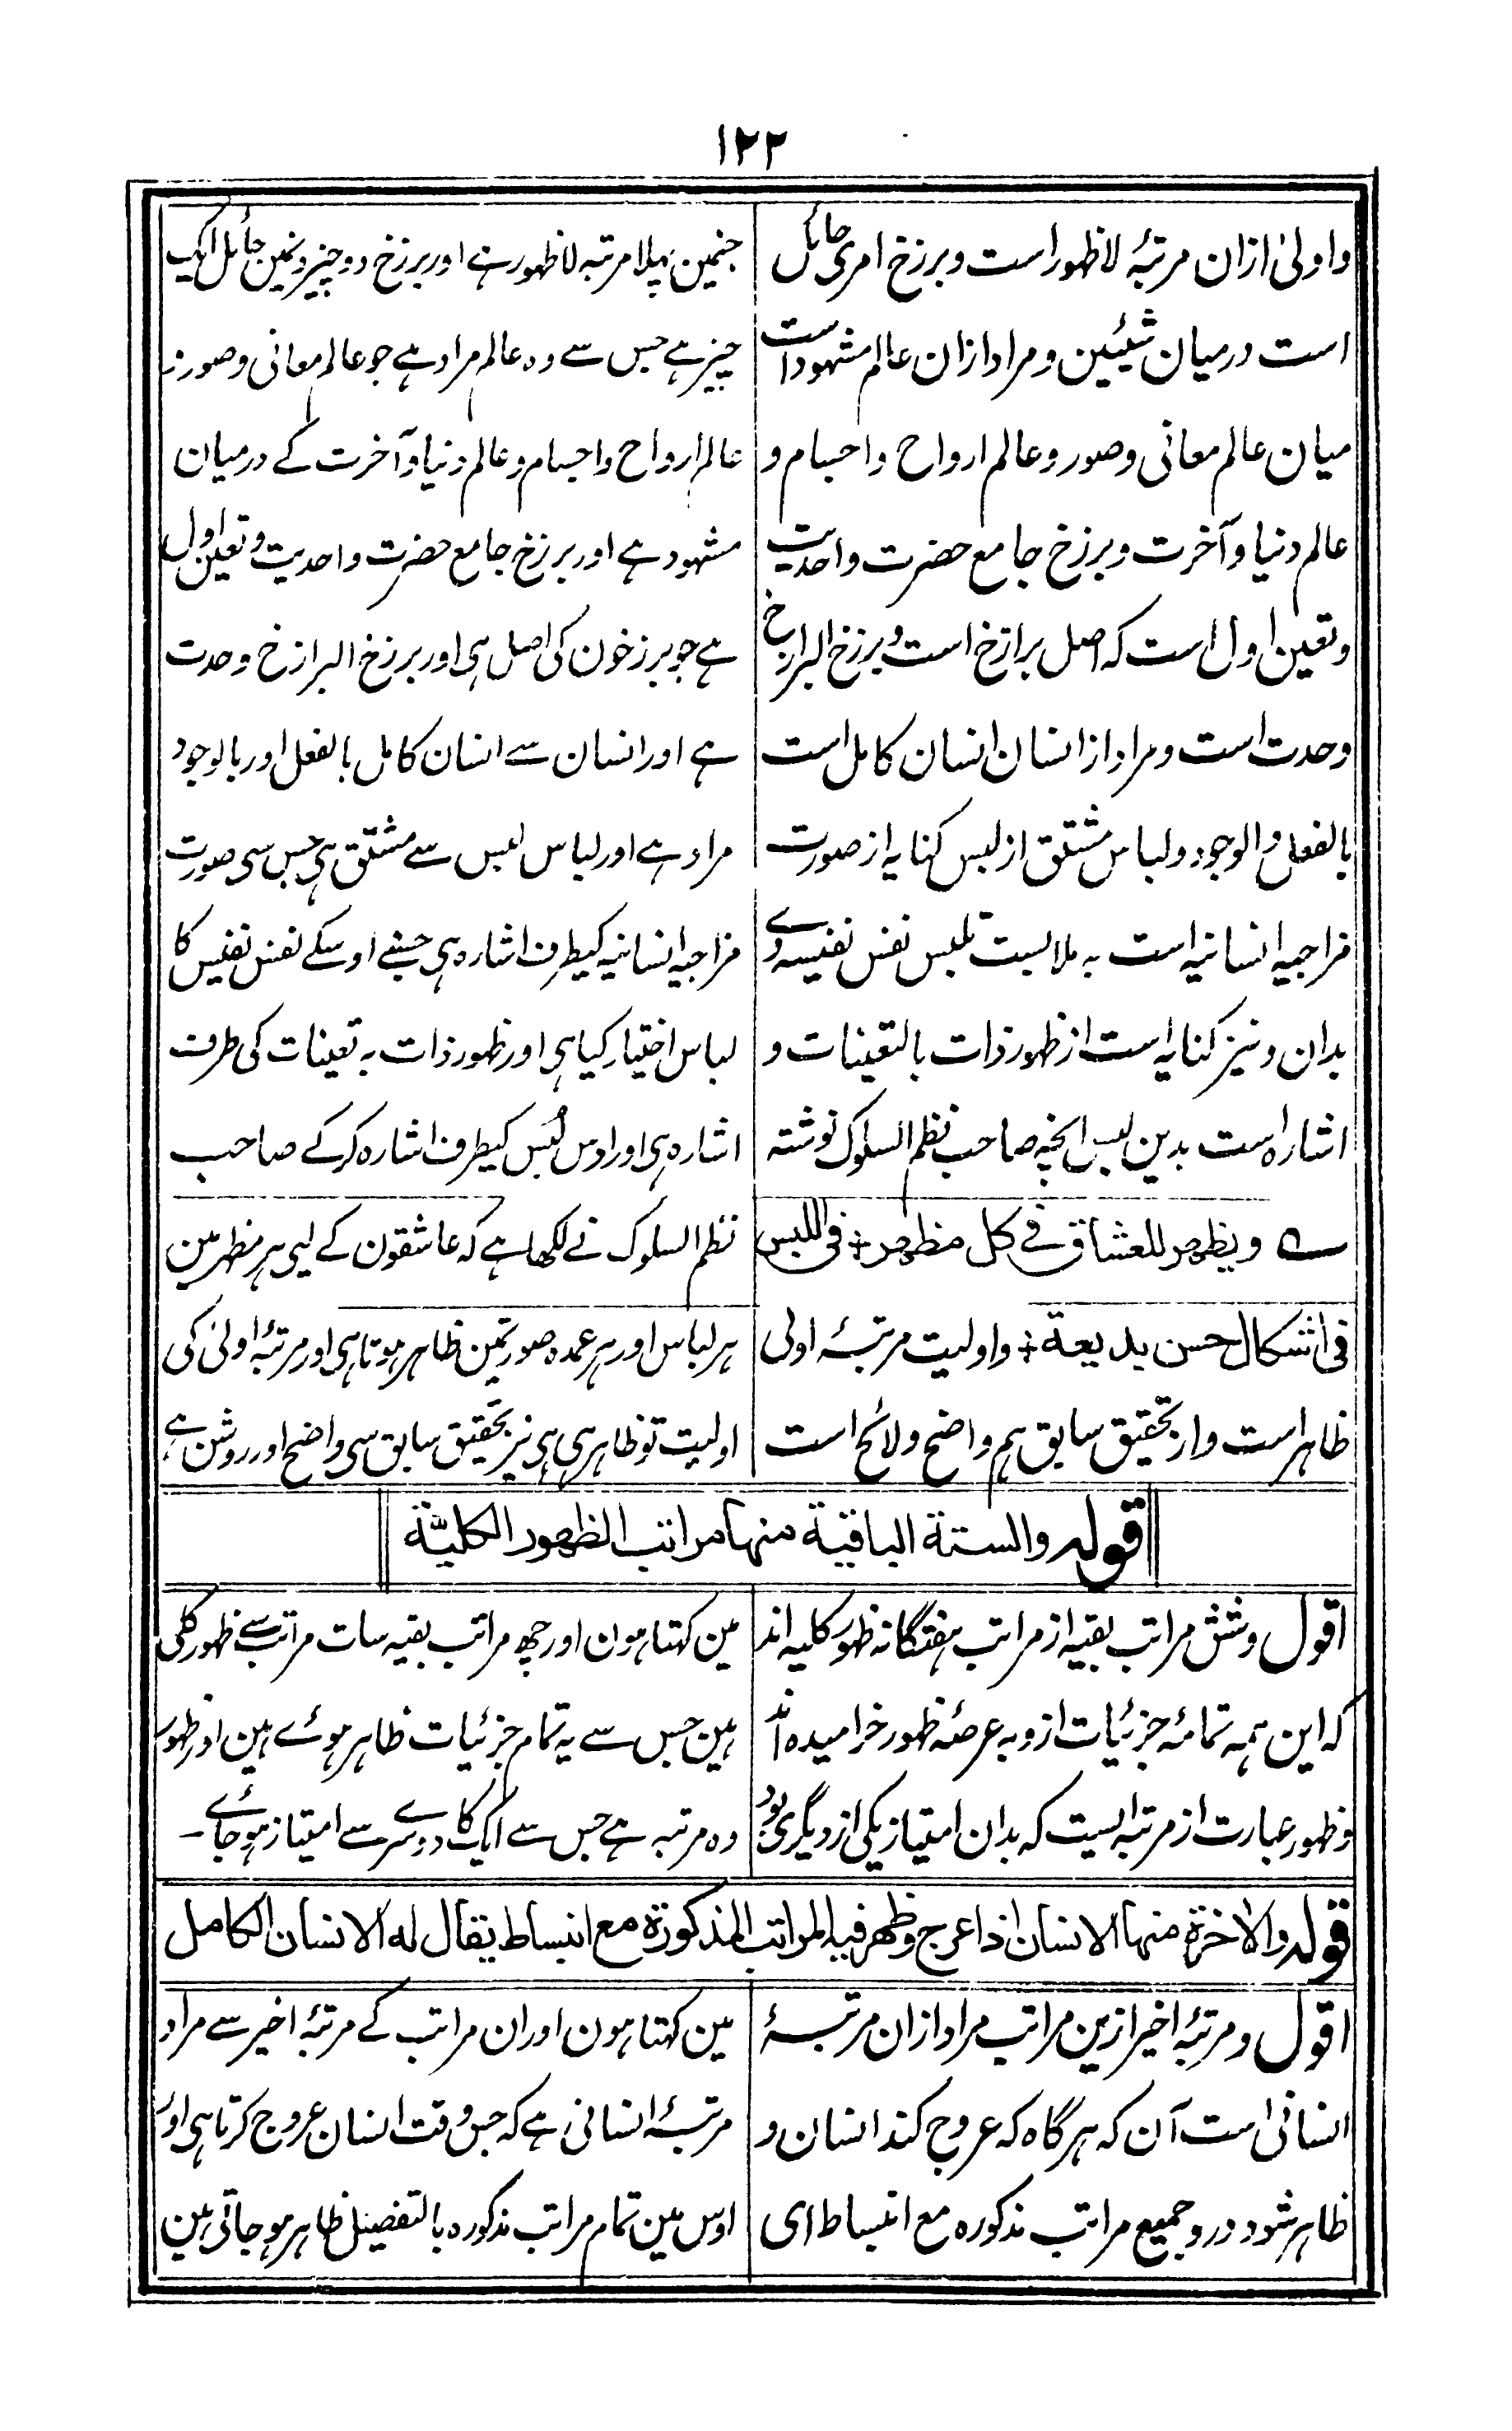 ۱۲۲
واولیٰ ازان مرتبۂ لاظهور است و برزخ امری حائل
است درمیان شیئین و مراد ازان عالم مشهود است
میان عالم معانی و صور و عالم ارواح و اجسام و
عالم دنیا و آخرت و برزخ جامع حضرت واحدیت
و تعین اول است که اصل برازخ است و برزخ البرازخ
وحدت است و مراد از انسان انسان کامل است
بالفعل والوجود و لباس مشتق از لبس کنایه از صورت
مزاجیه انسانیه است به ملابست تلبس نفس نفیسه وے
بدان و نیز کنایه است از ظهور ذات بالتعینات و
اشاره است بدین لبس آنچه صاحب نظم السلوک نوشته
ے ویظهر للعشاق فی کل مظهر ؞ فی اللبس
فی اشکال حسن بدیعة ؞ و اولیت مرتبۂ اولی
ظاهر است و از تحقیق سابق هم واضح و لائح است
جنمین پہلا مرتبہ لاظہور ہے اور برزخ دو چیزونمین حائل ایک
چیز ہے جس سے وہ عالم مراد ہے جو عالم معانی و صور و
عالم ارواح و اجسام و عالم دنیا و آخرت کے درمیان
مشہود ہے اور برزخ جامع حضرت واحدیت و تعین اول
ہے جو برزخون کی اصل ہی اور برزخ البرازخ وحدت
ہے اور انسان سے انسان کامل بالفعل اور بالوجود
مراد ہے اور لباس لبس سے مشتق ہی جس سی صورت
مزاجیہ انسانیہ کیطرف اشارہ ہی جسنے اوسکے نفس نفیس کا
لباس اختیار کیا ہی اور ظہور ذات بہ تعینات کی طرف
اشارہ ہی اور اوس لُبس کیطرف اشارہ کرکے صاحب
نظم السلوک نے لکھا ہے کہ عاشقون کے لیی ہر مظہر مین
ہر لباس اور ہر عمدہ صورتمین ظاہر ہوتا ہی اور مرتبۂ اولیٰ کی
اولیت تو ظاہر ہی ہی نیز تحقیق سابق سی واضح اور روشن ہے
قوله والستة الباقیة منها مراتب الظهور الکلیَّة
اقول و شش مراتب بقیه از مراتب هفتگانه ظهور کلیه اند
که این همه تمامۂ جزئیات ازو به عرصۂ ظهور خرامیده اند
و ظهور عبارت از مرتبه ایست که بدان امتیاز یکی از دیگری بود
مین کہتا ہون اور چھ مراتب بقیہ سات مراتب سے ظہور کلی
ہین جس سے یہ تمام جزئیات ظاہر ہوئے ہین اور ظہور
وہ مرتبہ ہے جس سے ایک کا دوسرے سے امتیاز ہو جائے۔
قوله والاخرة منها الانسان اذا عرج وظهر فیه المراتب المذکورة مع انبساط یقال له الانسان الکامل
اقول و مرتبۂ اخیر ازین مراتب مراد ازان مرتبۂ
انسانی است آن که هرگاه که عروج کند انسان و
ظاهر شود درو جمیع مراتب مذکوره مع انبساط ای
مین کہتا ہون اور ان مراتب کے مرتبۂ اخیر سے مراد
مرتبۂ انسانی ہے کہ جس وقت انسان عروج کرتا ہی اور
اوس مین تمام مراتب مذکورہ بالتفصیل ظاہر ہو جاتی ہین